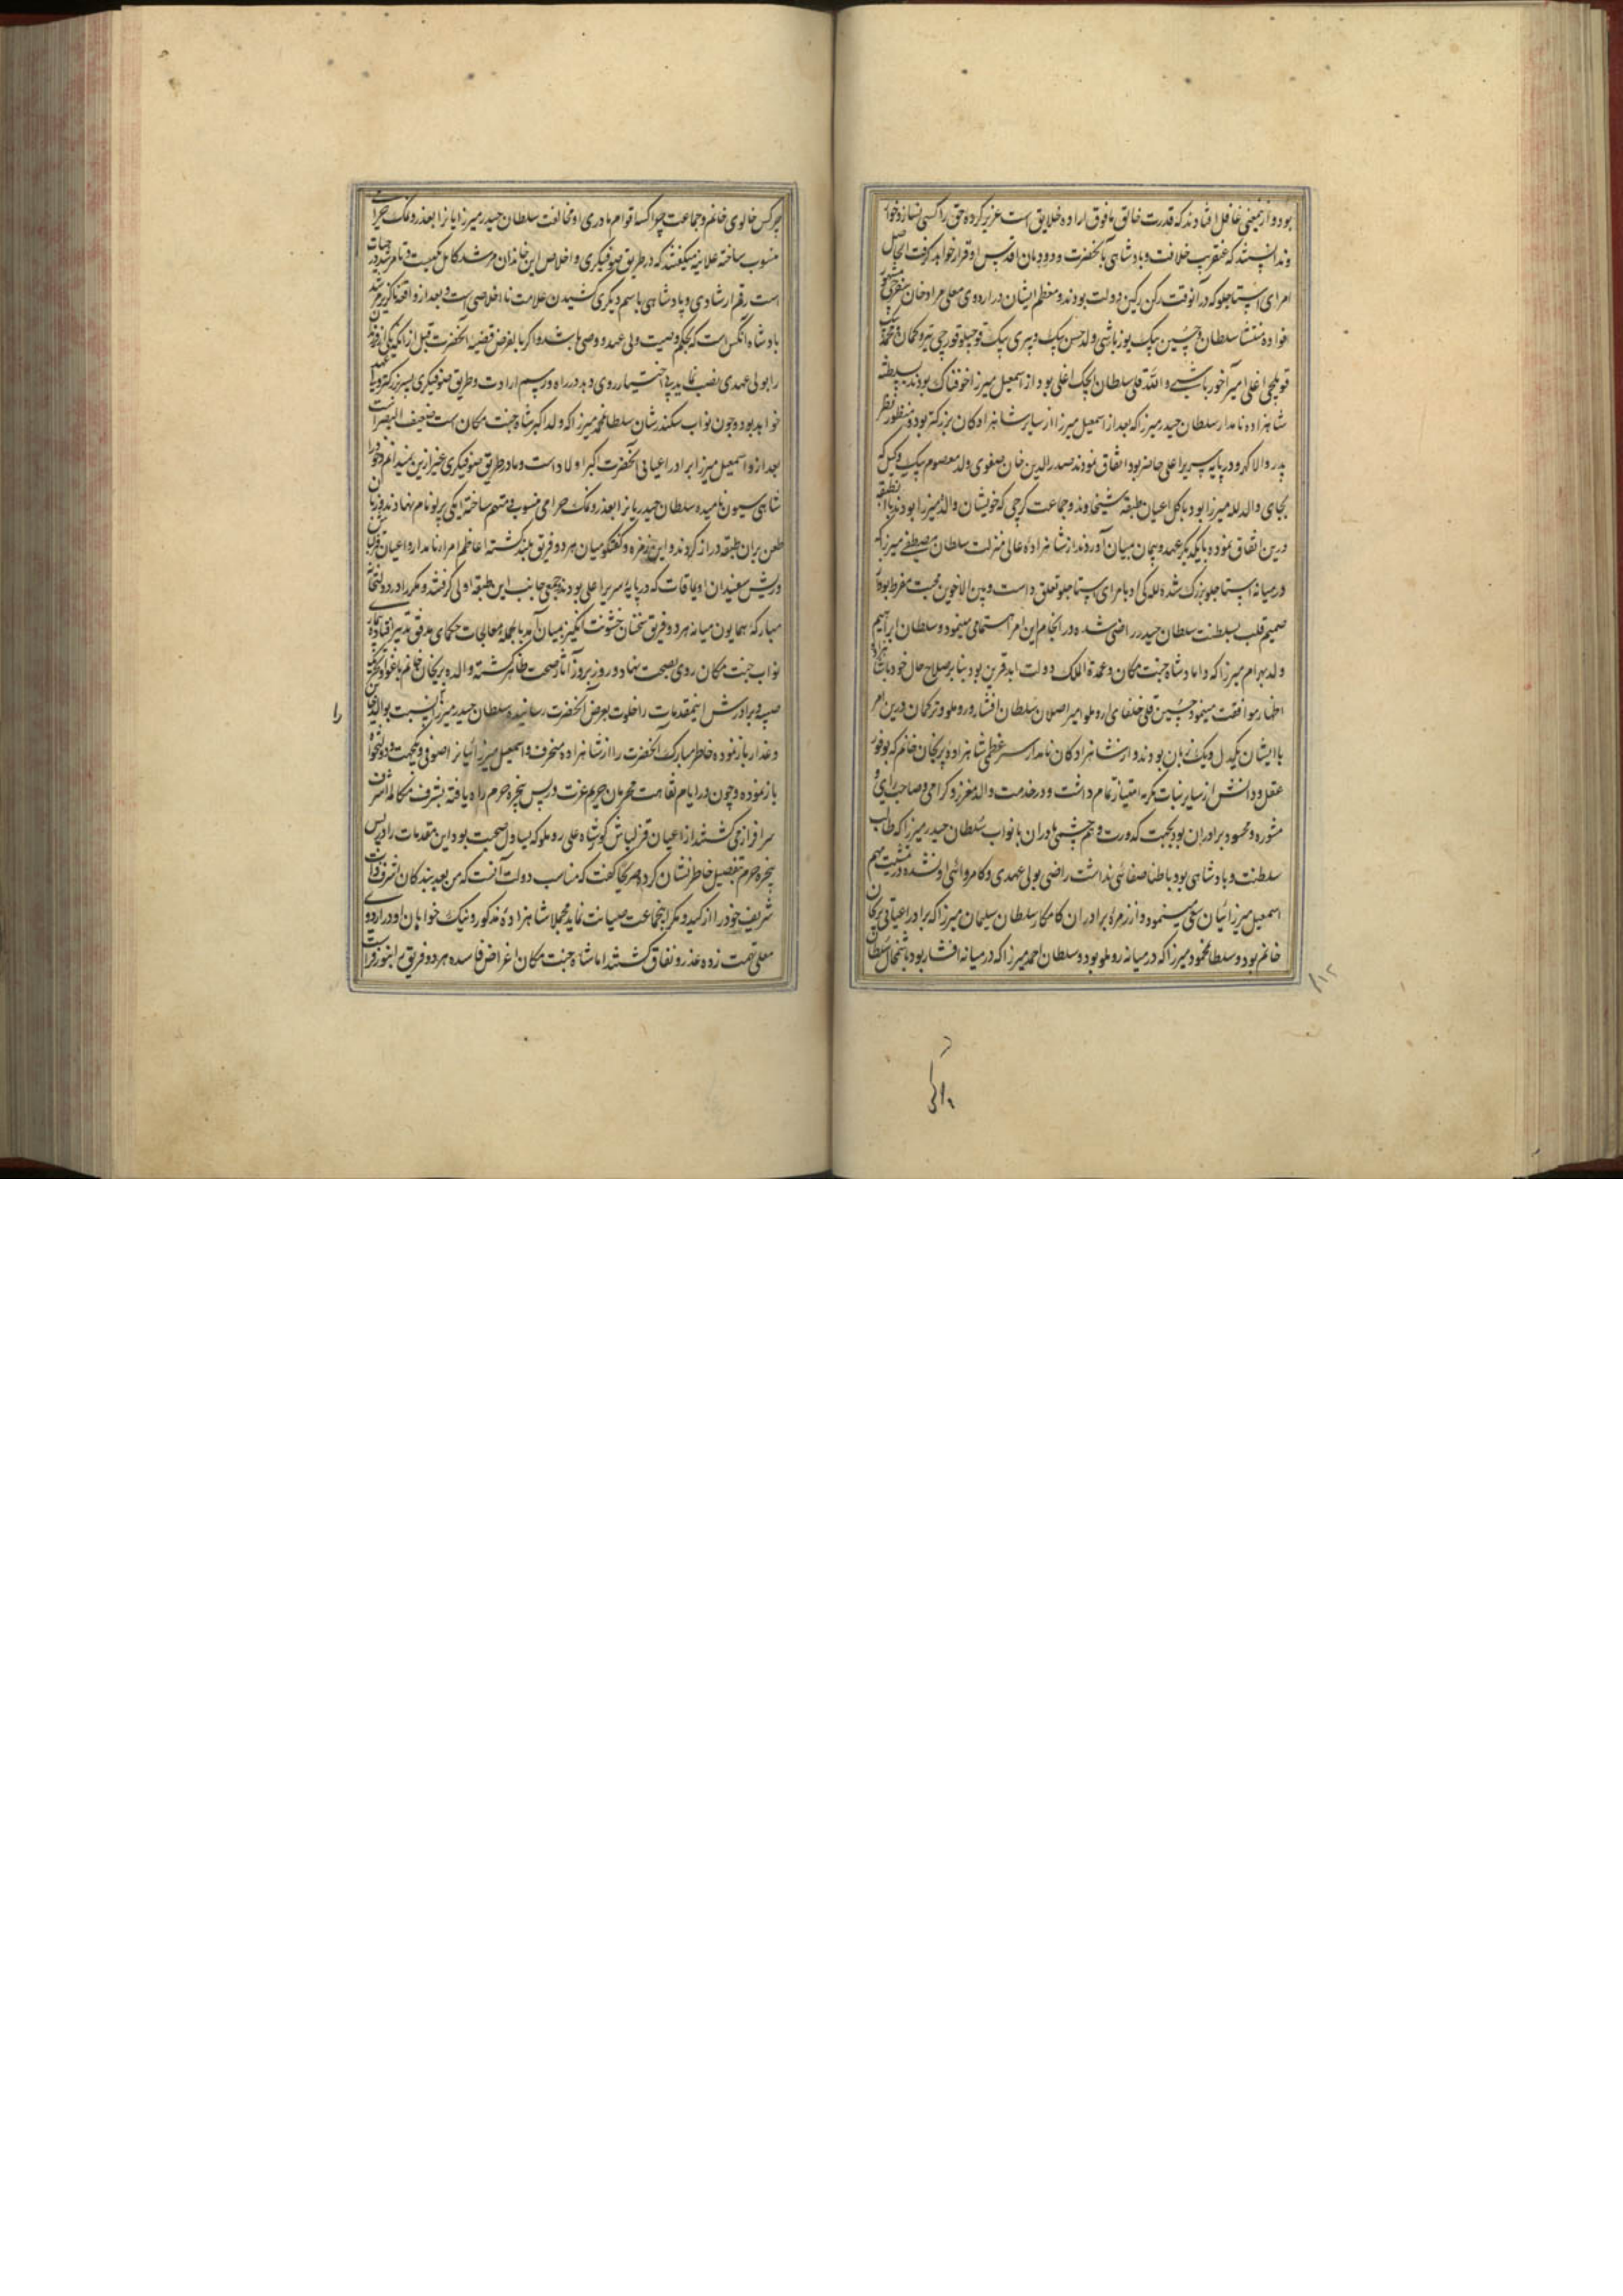 بود و ازینمعنی غافل افتادند که قدرت خالق مافوق اراده خلایق است عزیز کرده حق را کسی نسازد خوار
وندانستند که عنقریب خلافت و پادشاهی بآنحضرت و دودمان اقدس او قرار خواهد گرفت الحاصل
امرای استاجلو که در آنوقت رکن رکین دولت بودند و معظم ایشان در اردوی معلی مراد خان سفره‌چی
منتشا سلطان و حسین بیک یوزباشی ولد حسن بیک و پیری بیک قوچیلو قورچی تیر و کمان و محمد بیک
قویلچی اغلی امیر آخور باشی و الله قلی سلطان ایجک اغلی بود از اسمعیل میرزا خوفناک بودند
شاهزاده نامدار سلطان حیدر میرزا که بعد از اسمعیل میرزا از سایر شاهزادگان بزرگتر بود و منظور نظر
پدر والا گهر و در پایه سریر اعلی حاضر بود اتفاق نمودند صدرالدین خان صفوی ولد معصوم بیک وکیل که
بجای والد لله میرزا بود با کل اعیان طبقه شیخاوند و جماعت گرجی که خویشان والده میرزا بودند
درین اتفاق نموده با یکدیگر عهد و پیمان بمیان آوردند از شاهزاده عالی منزلت سلطان مصطفی میرزا که
در میانه استاجلو بزرگ شده للـه گی او بامرای استاجلو تعلق داشت و بین الاخوین محبت مفرط بود از
صمیم قلب بسلطنت سلطان حیدر راضی شده در انجام این امر اهتمامی مینمود و سلطان ابراهیم
ولد بهرام میرزا که داماد شاه جنت مکان و عمدة الملک دولت ابد قرین بود بنابر صلاح حال خود
اظهار موافقت مینمود حسین قلی خلفای روملو امیر اصلان سلطان افشار و روملو و ترکمان درین امر
با ایشان یکدل و یک زبان بودند و از شاهزادگان نامدار سر عظمی شاهزاده پریخان خانم که بوفور
عقل و دانش از سایر بنات مکرمه امتیاز تمام داشت و در خدمت والد معزز و گرامی و صاحب رای و
مشوره و محسود برادران بود بجهت کدورت و هم چشمی مادران با نواب سلطان حیدر میرزا که طالب
سلطنت و پادشاهی بود باطنا صفائی نداشت راضی بولی عهدی و کامروائی او نشده در مشیت مهم
اسمعیل میرزائیان سعی مینمود و از زمره برادران کامکار سلطان سلیمان میرزا که برادر اعیانی پریخان
خانم بود و سلطان محمود میرزا که در میانه روملو بود و سلطان احمد میرزا که در میانه افشار بود با شمخال سلطان
۸۱۲
چرکس خالوی خانم و جماعت چراکسه اقوام مادری او مخالفت سلطان حیدر میرزایانرا بغدر و نمک حرامی
منسوب ساخته علانیه میگفتند که در طریق صوفیگری و اخلاص این خاندان مرشد کامل یکیست و تا مرشد در حیات
است رقم ارشادی و پادشاهی باسم دیگری کشیدن علامت نااخلاصی است و بعد از واقعه ناگزیر مرشد
پادشاه آنکس است که بحکم وصیت ولی عهد و وصی باشد و اگر بالفرض قضیه آنحضرت قبل از آنکه یکی از فرزندان
را بولی عهدی نصب نماید پی اختیار روی دهد در راه و رسم ارادت و طریق صوفیگری پسر بزرگتر ولی عهد
خواهد بود و چون نواب سکندر شان سلطان محمد میرزا که ولد اکبر شاه جنت مکان است ضعیف البصر است
بعد ازو اسمعیل میرزا برادر اعیانی آنحضرت اکبر اولاد است و ما در طریق صوفیگری غیر ازین نمیدانیم و خود را
شاهی سیون نامیده سلطان حیدریانرا بغدر و نمک حرامی منسوب و متهم ساخته ایکی بیرلو نام نهادند و زبان
طعن بران طبقه دراز کردند و این زمزمه و گفتگو میان هر دو فریق بلند گشته اعاظم امراء نامدار و اعیان قزلباش
و ریش سفیدان اویماقات که در پایه سریر اعلی بودند جمعی جانب این طبقه اولی گرفتند و مکرر در دولتخانه
مبارکه همایون میانه هر دو فریق سخنان خشونت انگیز بمیان آمد بالجمله معالجات حکمای حاذق پذیر افتاده بیماری
نواب جنت مکان روی بصحت نهاد و روز بروز آثار صحت ظاهر گشته والده پریخان خانم باغوا و تحریک
صبیه و برادرش اینمقدمات را خلوت بعرض آنحضرت رسانیده سلطان حیدر میرزا را نسبت بوالد خاین
و غدار باز نموده خاطر مبارک آنحضرت را از شاهزاده منحرف و اسمعیل میرزائیانرا صوفی و یکجهت و دولتخواه
باز نموده و چون در ایام نقاهت محرمان حریم عزت در پس پنجره حرم راه یافته بشرف مکالمه اشرف
سرافراز می گشتند از اعیان قزلباش کوشاه علی روملو که یساول صحبت بود این مقدمات را در پس
پنجره حرم بتفصیل خاطر نشان کرد و صریحا گفت که مناسب دولت آنست که من بعد بندگان اشرف ذات
شریف خود را از کید و مکر اینجماعت صیانت نماید مجملا شاهزاده مذکور و نیک خواهان او در اردوی
معلی تهمت زده غدر و نفاق گشتند اما شاه جنت مکان اغراض فاسده هر دو فریق را بنور فراست
را